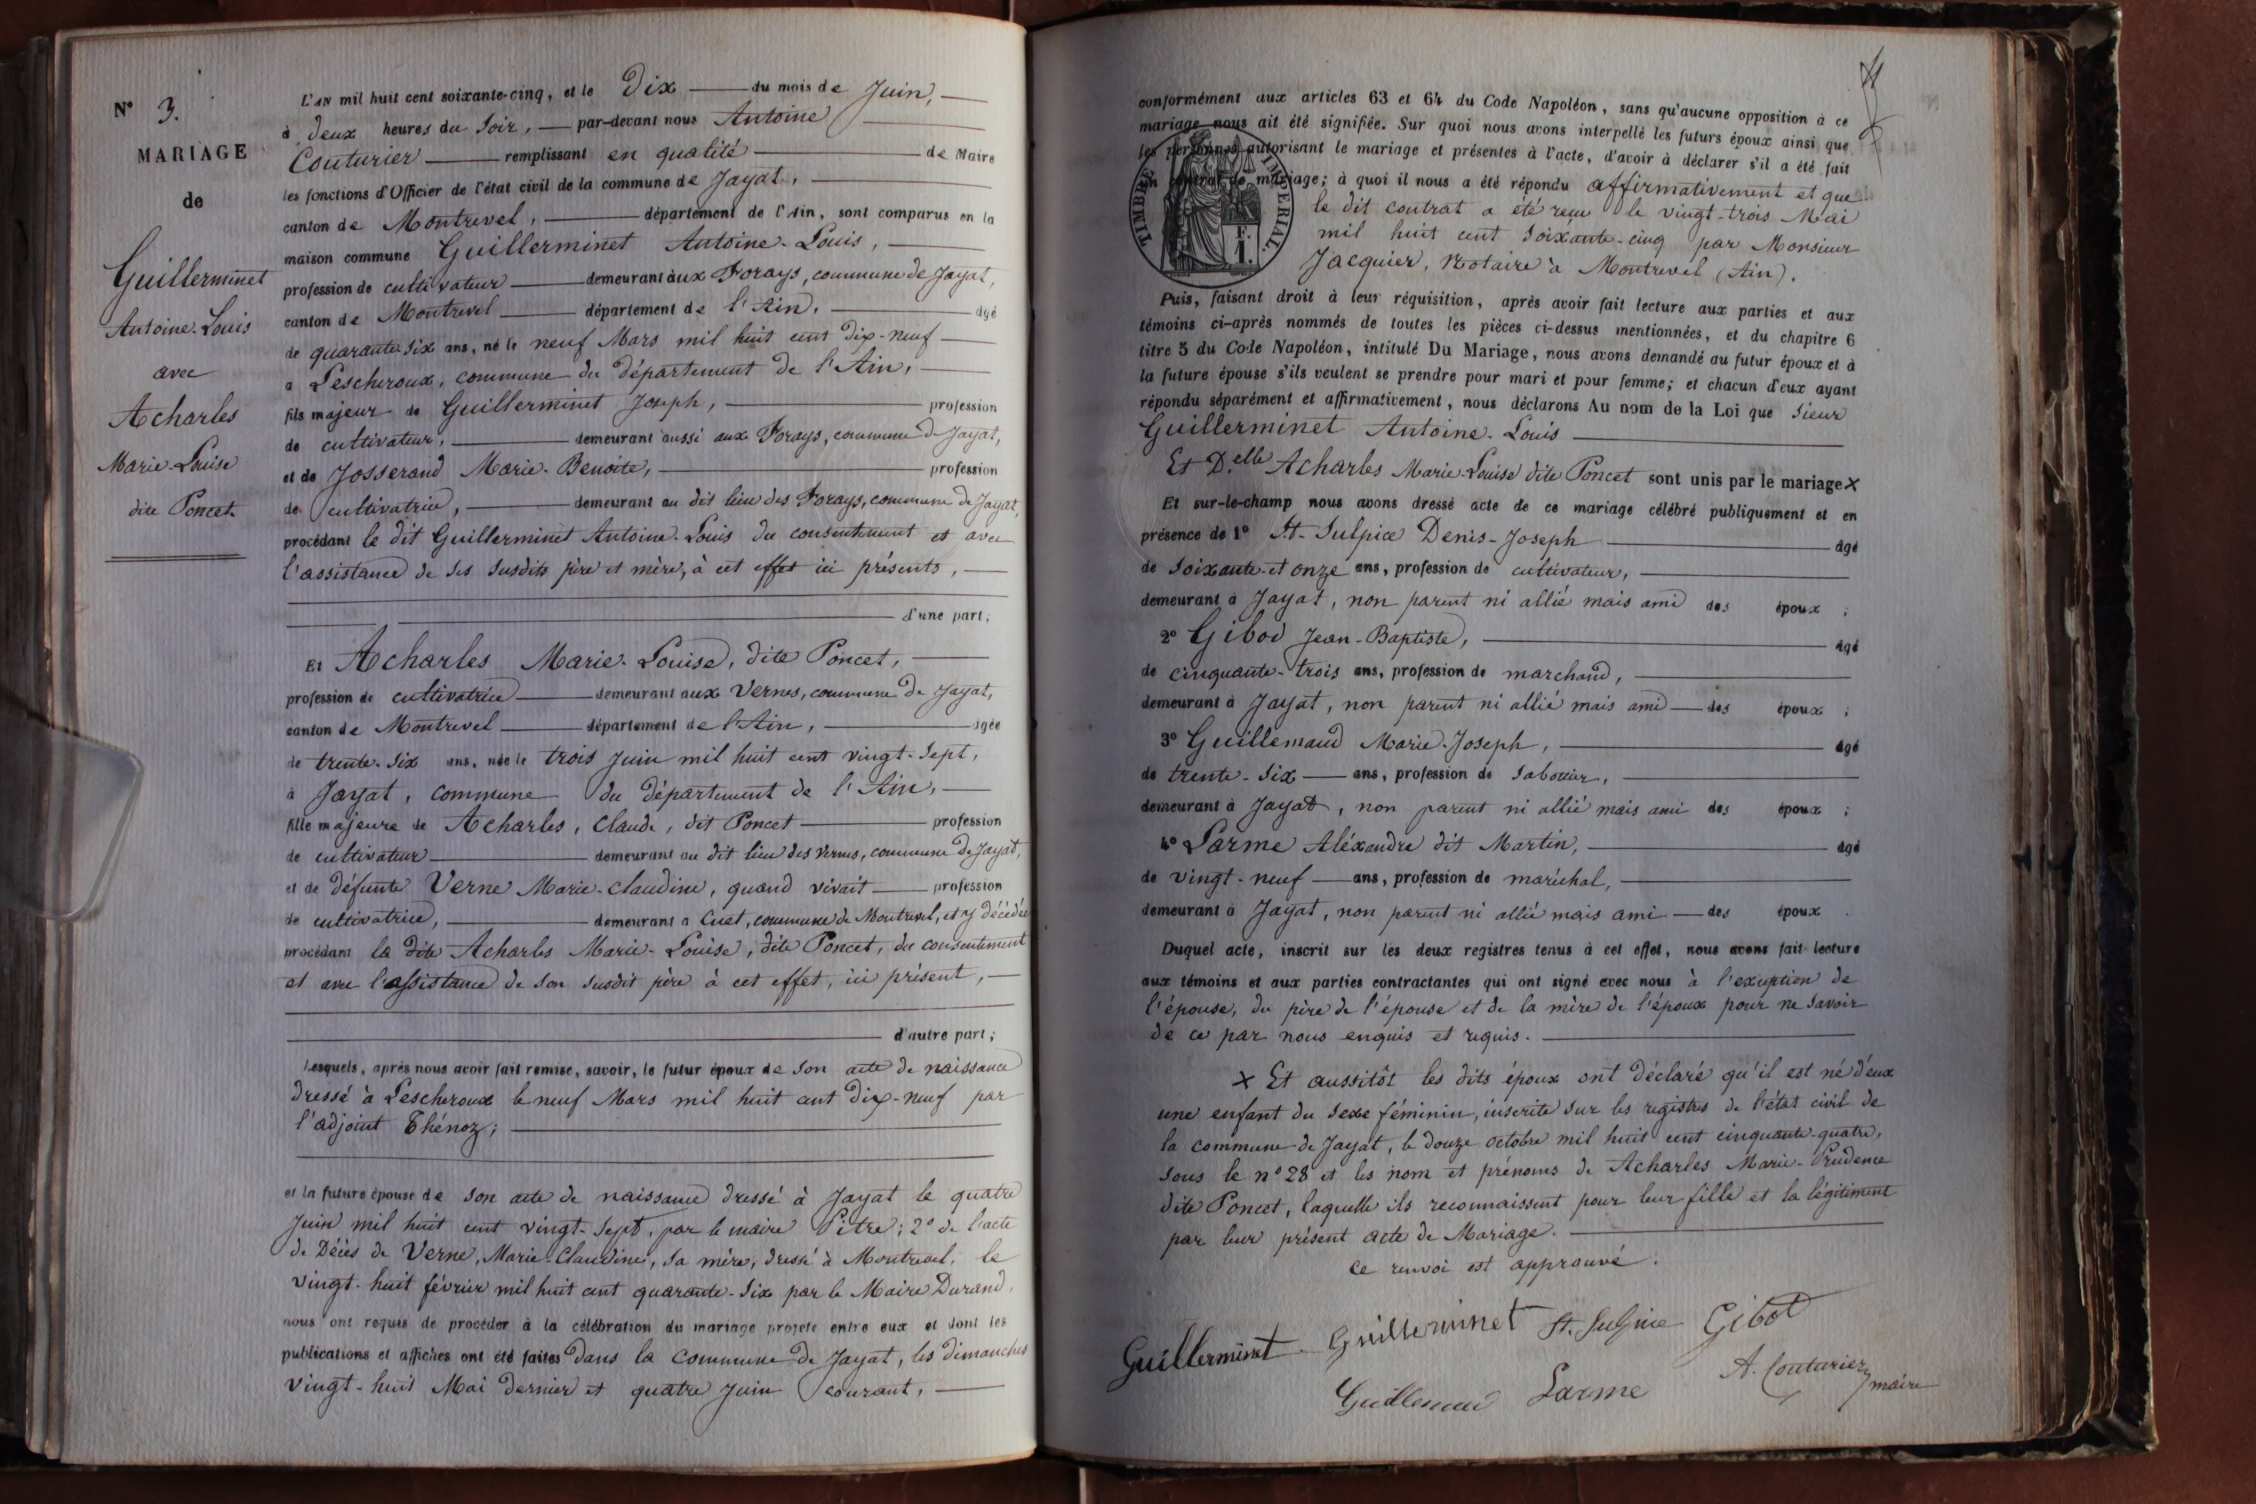 N° 3.
MARIAGE
de
Guillerminet
Antoine-Louis
avec
Acharles
Marie-Louise
dite Poncet.
L'AN mil huit cent soixante-cinq, et le Dix du mois de Juin,
à deux heures du Soir, par-devant nous Antoine
Couturier remplissant en qualité de Maire
les fonctions d'Officier de l'état civil de la commune de Jayat,
canton de Montrevel, département de l'Ain, sont comparus en la
maison commune Guillerminet Antoine-Louis,
profession de cultivateur demeurant aux Forays, commune de Jayat,
canton de Montrevel département de l'Ain, âgé
de quarante-six ans, né le neuf Mars mil huit cent dix-neuf
à Lescheroux, commune du département de l'Ain,
fils majeur de Guillerminet Joseph, profession
de cultivateur, demeurant aussi aux Forays, commune de Jayat,
et de Josserand Marie-Benoite, profession
de cultivatrice, demeurant au dit lieu des Forays, commune de Jayat,
procédant le dit Guillerminet Antoine-Louis du consentement et avec
l'assistance de ses susdits père et mère, à cet effet ici présents,
d'une part;
Et Acharles Marie-Louise, dite Poncet,
profession de cultivatrice demeurant aux Vernes, commune de Jayat,
canton de Montrevel département de l'Ain, âgée
de trente-six ans, née le trois Juin mil huit cent vingt-sept,
à Jayat, commune du département de l'Ain,
fille majeure de Acharles, Claude, dit Poncet profession
de cultivateur demeurant au dit lieu des Vernes, commune de Jayat,
et de défunte Verne Marie-Claudine, quand vivait profession
de cultivatrice, demeurant à Cuet, commune de Montrevel, et y décédée
procédant la dite Acharles Marie-Louise, dite Poncet, du consentement
et avec l'assistance de son susdit père à cet effet, ici présent,
d'autre part;
Lesquels, après nous avoir fait remise, savoir, le futur époux de son acte de naissance
dressé à Lescheroux le neuf Mars mil huit cent dix-neuf par
l'adjoint Thénoz;
et la future épouse de son acte de naissance dressé à Jayat le quatre
Juin mil huit cent vingt-sept, par le maire Pitre; 2° de l'acte
de Décès de Verne, Marie-Claudine, sa mère, dressé à Montrevel, le
vingt-huit février mil huit cent quarante-six par le Maire Durand,
nous ont requis de procéder à la célébration du mariage projeté entre eux et dont les
publications et affiches ont été faites dans la commune de Jayat, les dimanches
vingt-huit Mai dernier et quatre Juin courant,
conformément aux articles 63 et 64 du Code Napoléon, sans qu'aucune opposition à ce
mariage nous ait été signifiée. Sur quoi nous avons interpellé les futurs époux ainsi que
les personnes autorisant le mariage et présentes à l'acte, d'avoir à déclarer s'il a été fait
un contrat de mariage; à quoi il nous a été répondu affirmativement et que
le dit contrat a été reçu le vingt-trois Mai
mil huit cent soixante-cinq par Monsieur
Jacquier, notaire à Montrevel (Ain).
TIMBRE IMPERIAL.
F.
1.
Puis, faisant droit à leur réquisition, après avoir fait lecture aux parties et aux
témoins ci-après nommés de toutes les pièces ci-dessus mentionnées, et du chapitre 6
titre 5 du Code Napoléon, intitulé Du Mariage, nous avons demandé au futur époux et à
la future épouse s'ils veulent se prendre pour mari et pour femme; et chacun d'eux ayant
répondu séparément et affirmativement, nous déclarons Au nom de la Loi que Sieur
Guillerminet Antoine-Louis
Et Delle Acharles Marie-Louise dite Poncet sont unis par le mariage X
Et sur-le-champ nous avons dressé acte de ce mariage célébré publiquement et en
présence de 1° St-Sulpice Denis-Joseph âgé
de soixante-et onze ans, profession de cultivateur,
demeurant à Jayat, non parent ni allié mais ami des époux;
2° Gibod Jean-Baptiste, âgé
de cinquante-trois ans, profession de marchand,
demeurant à Jayat, non parent ni allié mais ami des époux;
3° Guillemaud Marie-Joseph, âgé
de trente-six ans, profession de sabotier,
demeurant à Jayat, non parent ni allié mais ami des époux;
4° Larme Aléxandre dit Martin, âgé
de vingt-neuf ans, profession de maréchal,
demeurant à Jayat, non parent ni allié mais ami des époux.
Duquel acte, inscrit sur les deux registres tenus à cet effet, nous avons fait lecture
aux témoins et aux parties contractantes qui ont signé avec nous à l'exception de
l'épouse, du père de l'épouse et de la mère de l'époux pour ne savoir
de ce par nous enquis et requis.
X Et aussitôt les dits époux ont déclaré qu'il est né d'eux
une enfant du sexe féminin, inscrite sur les registres de l'état civil de
la commune de Jayat, le douze octobre mil huit cent cinquante-quatre,
sous le n° 28 et les nom et prénoms de Acharles Marie-Prudence
dite Poncet, laquelle ils reconnaissent pour leur fille et la légitiment
par leur présent acte de Mariage.
Ce renvoi est approuvé.
Guillerminet Guillerminet St. Sulpice Gibod
Guillemaud Larme A. Couturier maire